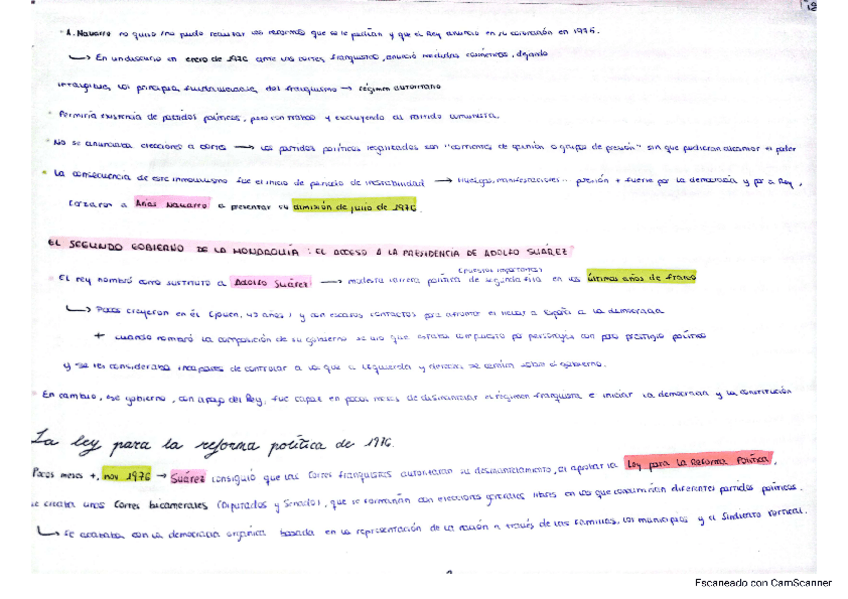 12
A. Navarro no quiso / no pudo realizar las reformas que se le pedían y que el Rey anunció en su coronación en 1975.
↳ En un discurso en enero de 1976 ante las cortes franquistas, anunció medidas cosméticas, dejando
intangibles, los principios fundamentales del franquismo → régimen autoritario
Permitiría existencia de partidos políticos, pero controlado y excluyendo al partido comunista.
No se anunciaba elecciones a cortes → los partidos políticos legalizados son "corrientes de opinión o grupos de presión" sin que pudieran alcanzar el poder
La consecuencia de este inmovilismo fue el inicio de periodo de inestabilidad → Huelgas, manifestaciones... presión + fuerte por la democracia y por a Rey,
forzaron a Arias Navarro a presentar su dimisión de julio de 1976.
EL SEGUNDO GOBIERNO DE LA MONARQUÍA: EL ACCESO A LA PRESIDENCIA DE ADOLFO SUÁREZ
(puestos importantes)
El rey nombró como sustituto a Adolfo Suárez → modesta carrera política de segunda fila en los últimos años de franco
↳ Pocos creyeron en él (joven, 43 años) y con escasos contactos para afrontar el llevar a España a la democracia
+ cuando nombró la composición de su gobierno se vio que estaba compuesto por personajes con poco prestigio político
y se les consideraba incapaces de controlar a los que a izquierdas y derechas se cernían sobre el gobierno.
En cambio, ese gobierno, con apoyo del Rey, fue capaz en pocos meses de desmantelar el régimen franquista e iniciar la democracia y la constitución
La ley para la reforma política de 1976.
Pocos meses +, nov 1976 → Suárez consiguió que las Cortes franquistas autorizaran su desmantelamiento, al aprobar la Ley para la Reforma Política,
se creaba unas Cortes bicamerales (Diputados y Senado), que se formarían con elecciones generales libres en las que concurrirían diferentes partidos políticos.
↳ Se acababa con la democracia orgánica basada en la representación de la nación a través de las familias, los municipios y el Sindicato Vertical.
Escaneado con CamScanner